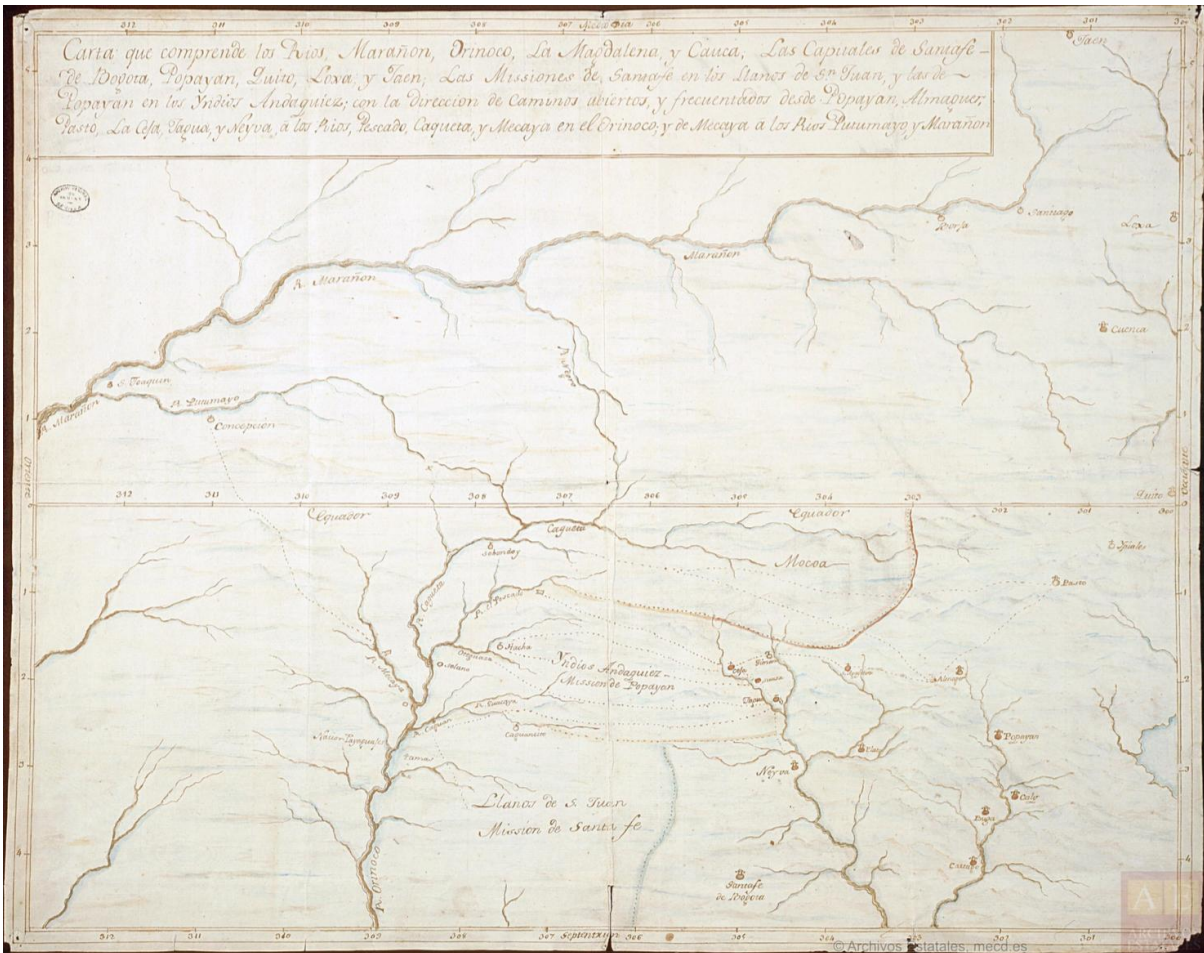 312 311 310 309 308 307 306 305 304 303 302 301 300
Carta que comprende los Rios, Marañon, Orinoco, La Magdalena, y Cauca; Las Capitales de Santafe
de Bogota, Popayan, Quito, Loxa, y Jaen; Las Missiones de Santafe en los Llanos de Sn. Juan, y las de
Popayan en los Yndios Andaquiez; con la direccion de Caminos abiertos, y frecuentados desde Popayan, Almaguer,
Pasto, La Ceja, Tagua, y Neyva, a los Rios, Pescado, Caqueta, y Mecaya en el Orinoco, y de Mecaya a los Rios Putumayo y Marañon
Jaen
Santiago
Borja
Loxa
Marañon
R. Marañon
Cuenca
S. Joaquin
R. Marañon
R. Putumayo
Concepcion
Oriente
312 311 310 309 308 307 306 305 304 303 302 300
Quito
Equador
Equador
Caqueta
Mocoa
Pasto
R. Caqueta
R. d Pescado
Solano
Yndios Andaquiez
Mission de Popayan
Ceja
Almaguer
R. Caguan
Popayan
Neyva
Llanos de S. Juan
Mission de Santa fe
Cali
Buga
Santafe
de Bogota
R. Orinoco
312 311 310 309 308 307 Septentrion 306 305 304 303 302 301 300
© Archivos Estatales, mecd.es